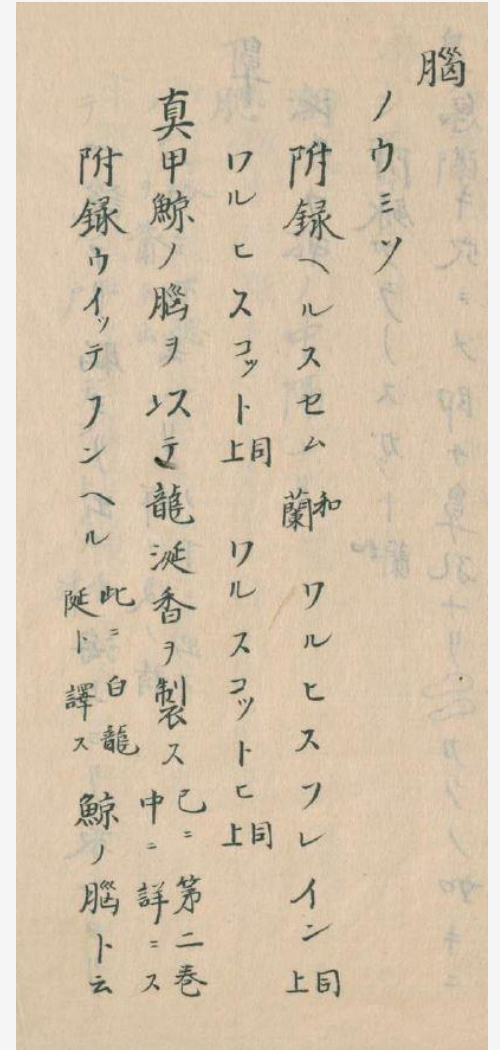 腦
ノウミソ
附録ヘルスセム 和蘭 ワルヒスフレイン 同上
ワルヒスコット 同上 ワルスコットヒ 同上
真甲鯨ノ腦ヲ以テ龍涎香ヲ製ス 已ニ第二巻中ニ詳ニス
附録ウイッテフンヘル 此ニ白龍涎ト譯ス 鯨ノ腦ト云